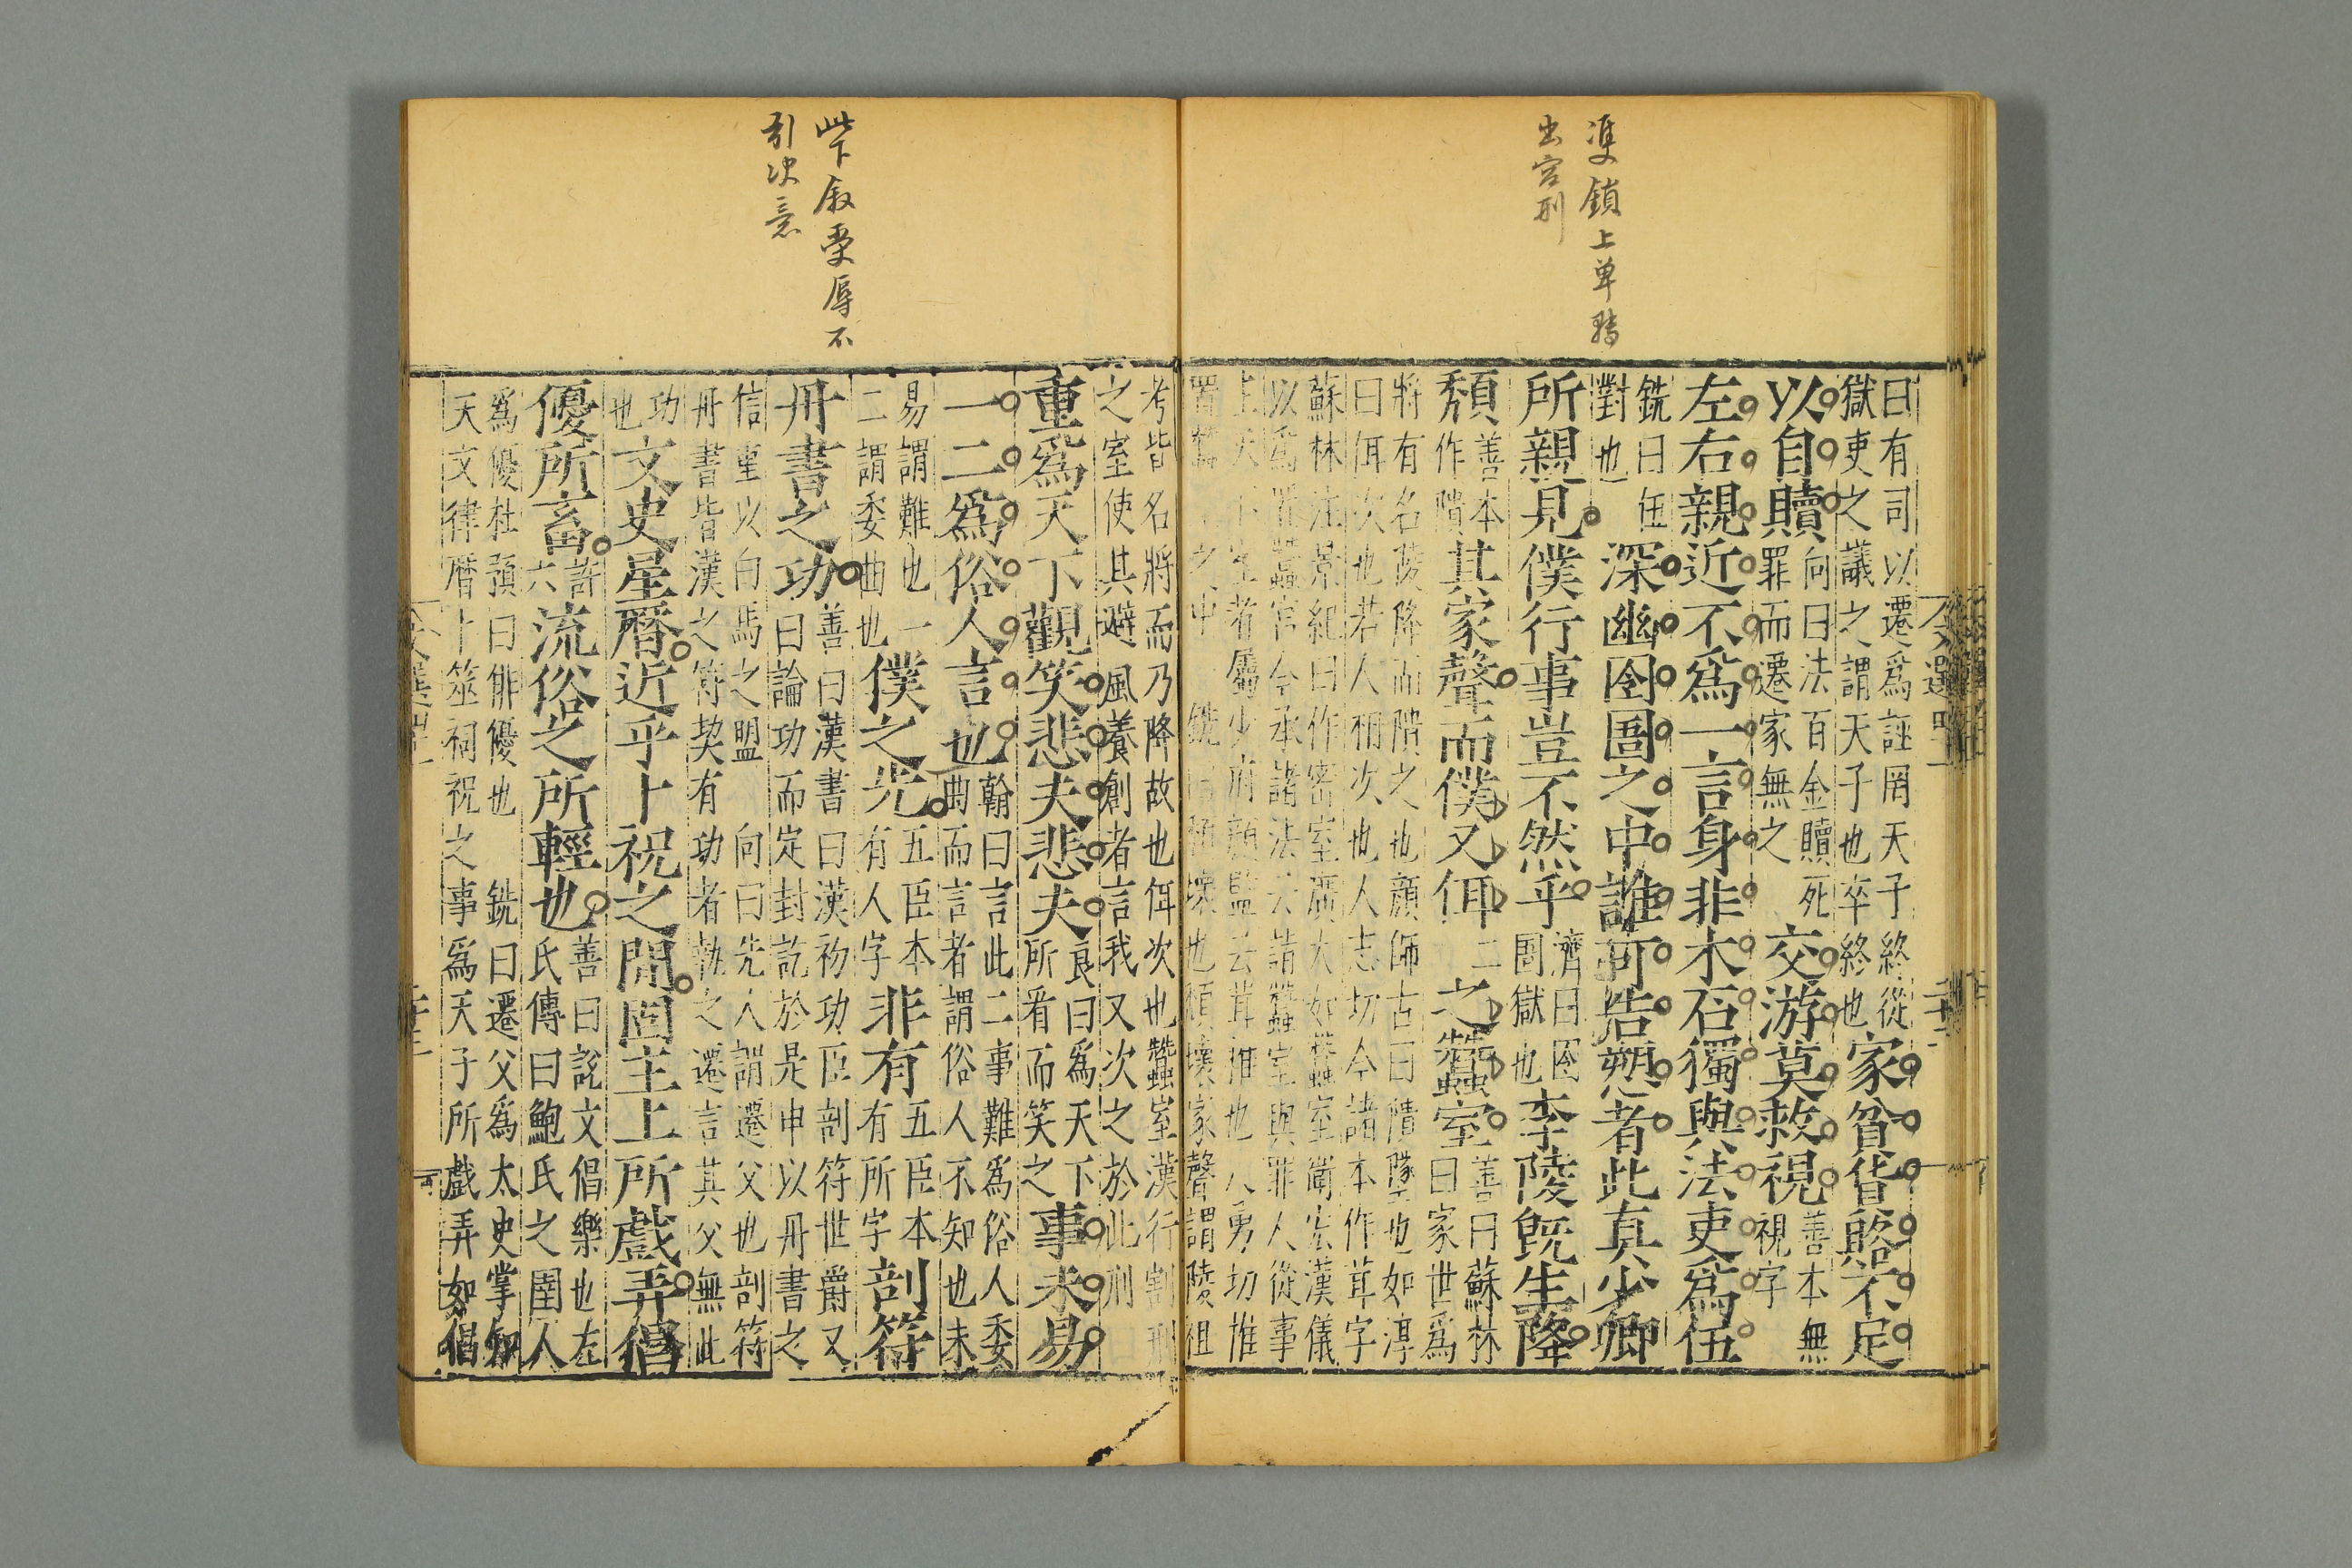 雙鎖上單轉
出宮刑
曰有司以遷爲誣罔天子終從
獄吏之議之謂天子也卒終也
家貧貨賂不足
以自贖
向曰法百金贖死
罪而遷家無之
交游莫救視
善本無
視字
左右親近不爲一言身非木石獨與法吏爲伍
銑曰伍
對也
深幽囹圄之中誰可告愬者此真少卿
所親見僕行事豈不然乎
濟曰囹
圄獄也
李陵旣生降
頹
善本
作隤
其家聲而僕又佴
二
之蠶室
善曰蘇林
曰家世爲
將有名陵降而隤之也顔師古曰隤墜也如淳
曰佴次也若人相次也人志切今諸本作茸字
蘇林注景紀曰作密室廣大如蠶室衛宏漢儀
以爲置蠶官令承諸法云詣蠶室與罪人從事
主天下室者屬少府顔監云茸推也人勇切推
置蠶 之中 銑曰頹壞也頹壞家聲謂陵祖
此下叙受辱不
引決意
考皆名將而乃降故也佴次也蠶室漢行割刑
之室使其避風養創者言我又次之於此刑
重爲天下觀笑悲夫悲夫
良曰爲天下
所㸔而笑之
事未易
一二爲俗人言也
翰曰言此二事難爲俗人委
曲而言者謂俗人不知也未
易謂難也一
二謂委曲也
僕之先
五臣本
有人字
非有
五臣本
有所字
剖符
丹書之功
善曰漢書曰漢初功臣剖符世爵又
曰論功而定封訖於是申以丹書之
信重以白馬之盟 向曰先人謂遷父也剖符
丹書皆漢之符契有功者執之遷言其父無此
功
也
文史星曆近乎卜祝之間固主上所戲弄倡
優所畜
許
六
流俗之所輕也
善曰說文倡樂也左
氏傳曰鮑氏之圉人
爲優杜預曰俳優也 銑曰遷父爲太史掌知
天文律曆卜筮祠祝之事爲天子所戲弄如倡